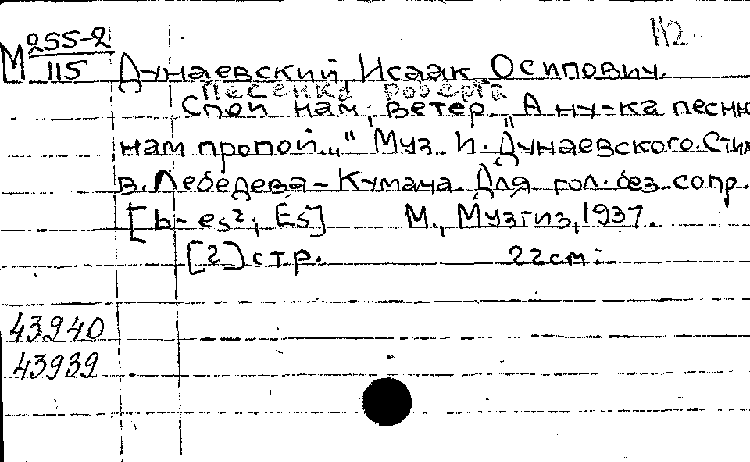 112
М 255-2
115
Дунаевский, Исаак Осипович.
Песенка Роберта
Спой нам, ветер. „А ну-ка песню
нам пропой..." Муз. И. Дунаевского. Стих
В. Лебедева-Кумача. Для гол. без сопр.
[b-es², Es] М., Музгиз, 1937.
[2] стр. 22см.
43940
43939